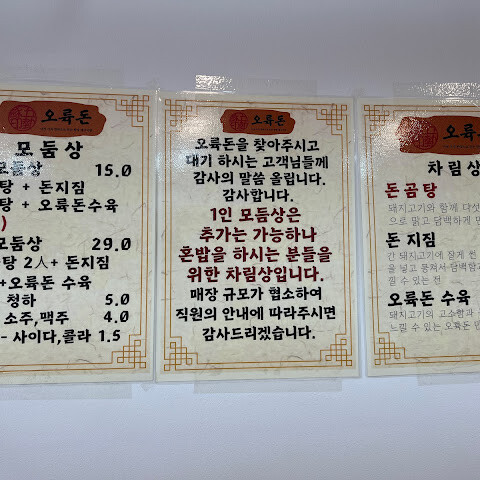 오륙돈
모둠상
모둠상 15.0
탕 + 돈지짐
탕 + 오륙돈수육
)
모둠상 29.0
탕 2人+ 돈지짐
+오륙돈 수육
청하 5.0
소주,맥주 4.0
- 사이다,콜라 1.5
오륙돈
오륙돈을 찾아주시고
대기 하시는 고객님들께
감사의 말씀 올립니다.
감사합니다.
1인 모둠상은
추가는 가능하나
혼밥을 하시는 분들을
위한 차림상입니다.
매장 규모가 협소하여
직원의 안내에 따라주시면
감사드리겠습니다.
오륙돈
차림상
돈곰탕
돼지고기와 함께 다섯
으로 맑고 담백하게
돈 지짐
간 돼지고기에 잘게 썬
을 넣고 뭉쳐서 담백함
낄 수 있는 전
오륙돈 수육
돼지고기의 고소함과
느낄 수 있는 오륙돈